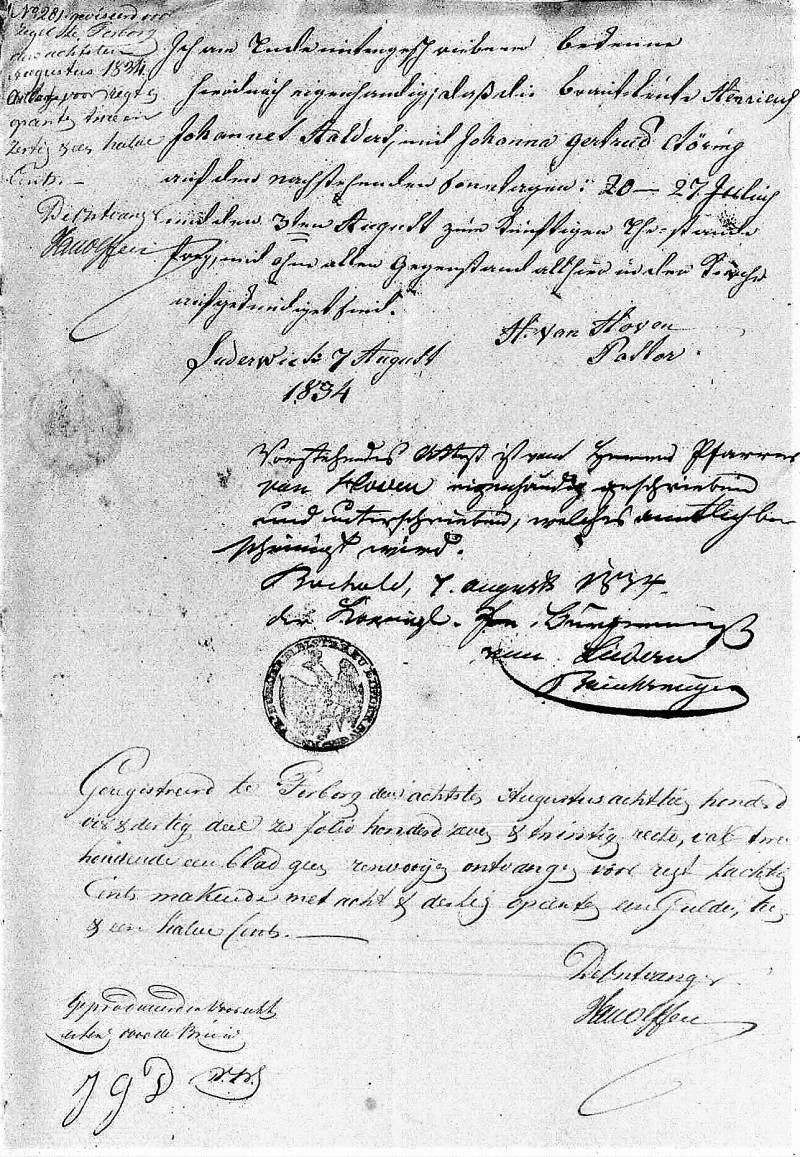 No 281 geviseerd voor
zegel te Terborg
den achtsten
Augustus 1834
voor regt
opcenten twee en
dertig & een halve
Cents.
De Ontvanger
Ich am Ende untengeschriebener bekenne
hierdurch eigenhändig, daß die Brautleute Henricus
Johannes Aalders, und Johanna Gertrud Döring
auf den nachstehenden Sonntagen: 20 – 27 Julich
und den 3ten August zum künftigen Ehe-stande
und ohne allen Gegenstand allhier in der Kirche
aufgekündiget sind.
H. van Hoven
Pastor.
Suderwick 7 August
1834
Vorstehendes Attest ist vom Herrn Pfarrer
van Hoven eigenhändig geschrieben
und unterschrieben, welches amtlich be-
scheinigt wird.
Bocholt, 7. august 1834.
der Koenigl. Bürgermeister
von Liedern
Geregistreerd te Terborg den achtsten Augustus achttien honderd
vier & dertig deel zes folio honderd zeven & twintig recto, vak twee
houdende een blad geen renvooijen ontvangen voor regt tachtig
Cents makende met acht & dertig opcenten een Gulden, tien
& een halve Cents.
De Ontvanger
Geproduceerd en voor echt
erkend voor de Bruid
J G D